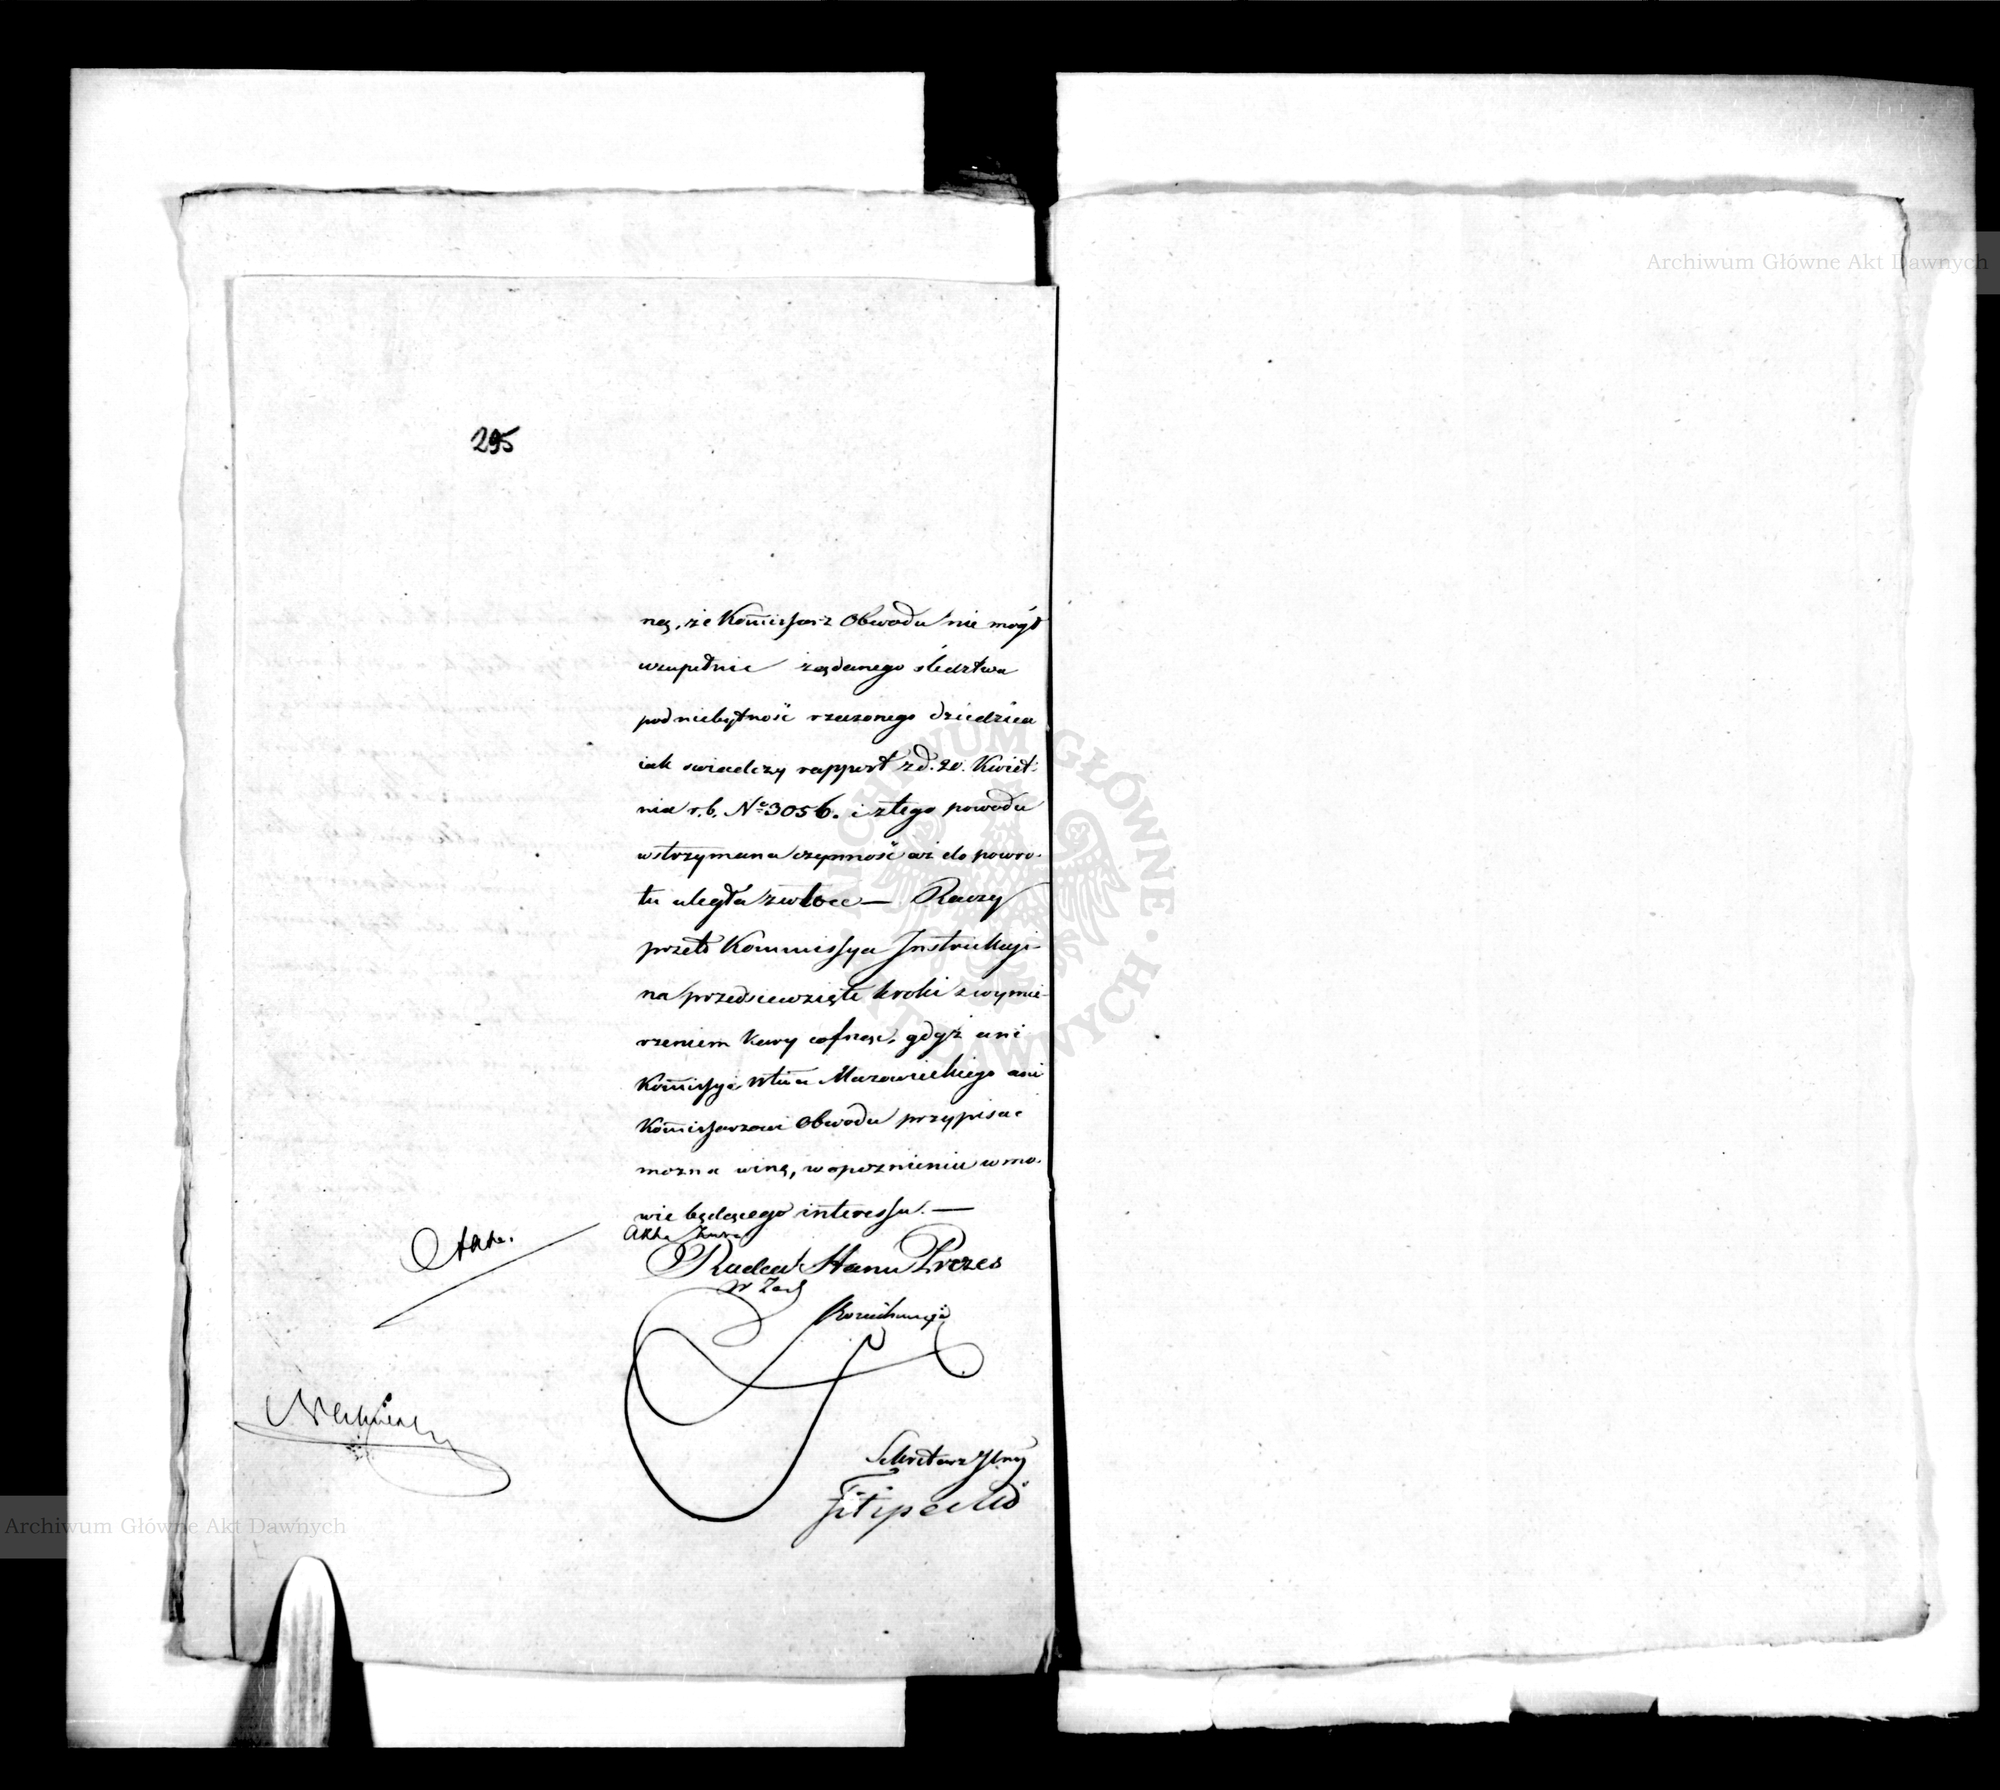 295
ną, że Kom̄issarz Obwodu nie mógł
uzupełnić żądanego śledztwa
pod niebytność rzeczonego dziedzica
iak swiadczy rapport z d. 20. Kwiet:
nia r. b. Nº 3056. i z tego powodu
wstrzymana czynność aż do powro-
tu uległa zwłoce — Raczy
przeto Kommissya Instrukcyi-
na przedsiewzięte kroki z wymie-
rzeniem Kary cofnąć, gdyż ani
Kom̄issyi Wtwa Mazowieckiego ani
Kom̄issarzowi Obwodu przypisać
mozna winę, w opoznieniu w mo-
wie będącego interessu. —
Akta
Radca Stanu Prezes
W Zast
Sekretarz Jlny
Filipecki
Archiwum Główne Akt Dawnych
Archiwum Główne Akt Dawnych
ARCHIWUM GŁÓWNE AKT DAWNYCH